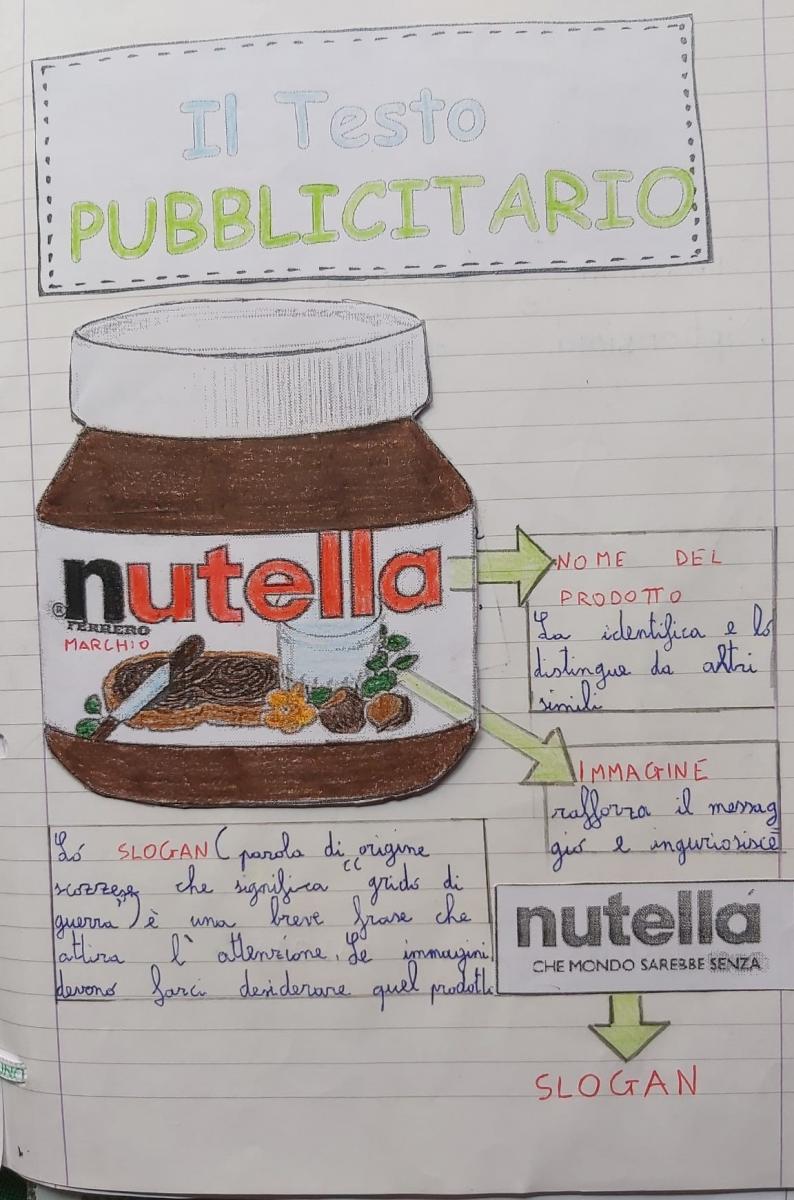 Il Testo
PUBBLICITARIO
nutella
®
FERRERO
MARCHIO
NOME DEL
PRODOTTO
La identifica e lo
distingue da altri
simili
IMMAGINE
rafforza il messag
gio e inguriosisce
Lo SLOGAN ( parola di origine
scozzese che significa “ grido di
guerra”) è una breve frase che
attira l' attenzione. Le immagini
devono farci desiderare quel prodotto
nutella
CHE MONDO SAREBBE SENZA
SLOGAN